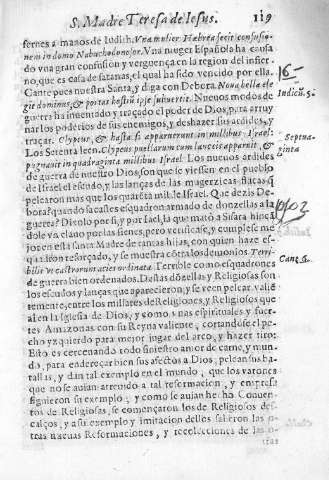 S. Madre Teresa de Iesus. 119
fernes a manos de Iudith. Vna mulier Hebræa fecit confusio-
nem in domo Nabuchodonosor. Vna muger Española ha causa
do vna gran confusion y verguença en la region del infier-
no, que es casa de satanas, el qual ha sido vencido por ella.
Cante pues nuestra Santa, y diga con Debora. Noua bella ele-
git dominus, & portas hostiũ ipse subuertit. Nueuos modos de
guerra ha inuentado y traçado el poder de Dios, para arruy
nar los poderios de sus enemigos, y deshazer sus ardides, y
traças. Clypeus, & hasta si apparuerunt in millibus Israel:
Los Setenta leen. Clypeus puellarum cum lanceis apparuit, &
pugnauit in quadraginta millibus Israel. Los nueuos ardides
de guerra de nuestro Dios, son que se viessen en el pueblo
de Israel el escudo, y las lanças de las mugerzicas flacas, q̃
pelearon mas que los quarẽta mil de Israel. Que dezis De
bora? quando se casſ es esquadron armado de donzellas a la
guerra? Dixolo por si, y por Iael, la que mató a Sisara hincã
dole vn clauo por las sienes, pero verificase, y cumplese me
jor en esta santa Madre de tantas hijas, con quien haze es-
quadron reforçado, y se muestra cõtra los demonios Terri-
bilis vt castrorum acies ordinata. Terrible como esquadrones
de guerra bien ordenados. Destas dõzellas y Religiosas son
los escudos y lanças que aparecieron, y se veen pelear valiẽ
temente, entre los millares de Religiosos, y Religiosas que
ai en la Iglesia de Dios, y como vnas espirituales y fuer-
tes Amazonas con su Reyna valiente, cortandose el pe-
cho yzquierdo para mejor jugar del arco, y hazer tiro:
Esto es cercenando todo siniestro amor de carne, y mun-
do, para endereçar bien sus afectos a Dios, pelean sus ba-
tallas, y dan tal exemplo en el mundo, que los varones
que no se auian atreuido a tal reformacion, y empresa
siguieron su exemplo; y como se auian hecho Conuen-
tos de Religiosas, se començaron los de Religiosos des-
calços, y a su exemplo y imitacion dellos salieron las o-
tras nueuas Reformaciones, y recolecciones de las o-
tras
Iudicũ. 5.
Septua-
ginta
Cant. 6.